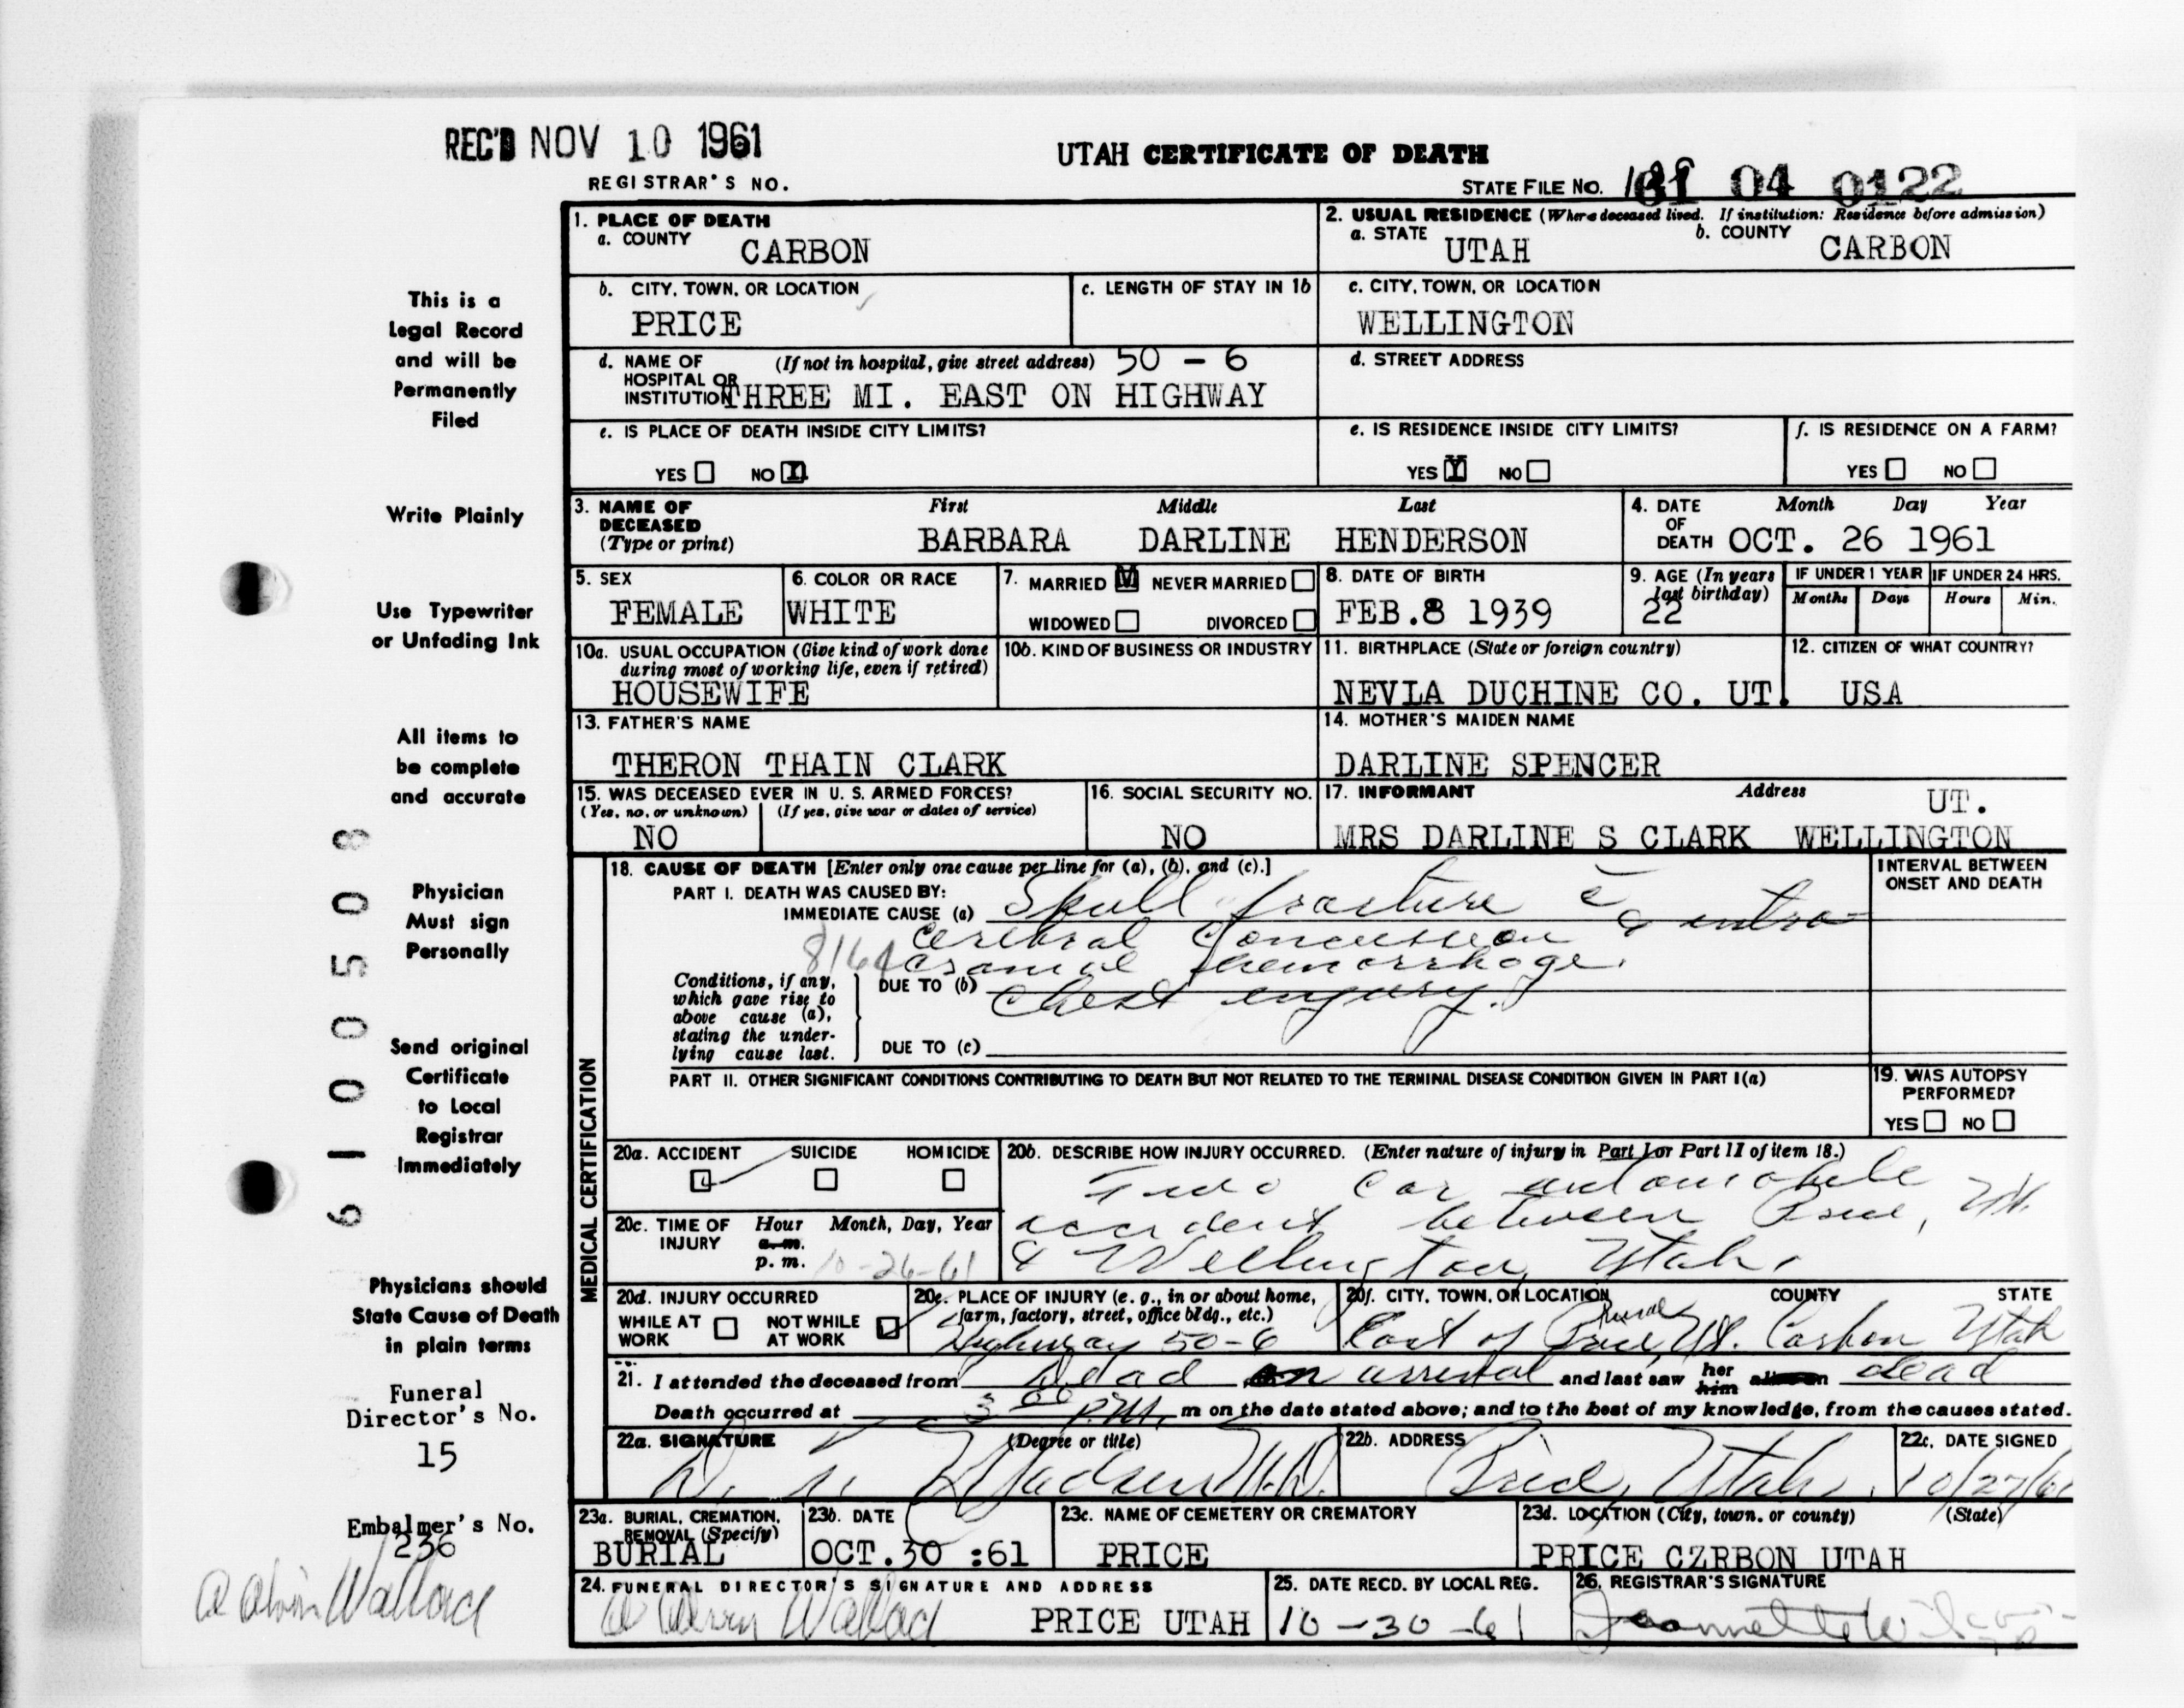 REC'D NOV 10 1961
UTAH CERTIFICATE OF DEATH
REGISTRAR'S NO.
STATE FILE NO. 61 04 0122
1. PLACE OF DEATH
a. COUNTY
CARBON
2. USUAL RESIDENCE (Where deceased lived. If institution: Residence before admission)
a. STATE
UTAH
b. COUNTY
CARBON
b. CITY, TOWN, OR LOCATION
PRICE
c. LENGTH OF STAY IN 1b
c. CITY, TOWN, OR LOCATION
WELLINGTON
d. NAME OF HOSPITAL OR INSTITUTION
(If not in hospital, give street address) 50 - 6
THREE MI. EAST ON HIGHWAY
d. STREET ADDRESS
e. IS PLACE OF DEATH INSIDE CITY LIMITS?
YES NO X
e. IS RESIDENCE INSIDE CITY LIMITS?
YES Y NO
f. IS RESIDENCE ON A FARM?
YES NO
3. NAME OF DECEASED (Type or print)
First Middle Last
BARBARA DARLINE HENDERSON
4. DATE OF DEATH
Month Day Year
OCT. 26 1961
5. SEX
FEMALE
6. COLOR OR RACE
WHITE
7. MARRIED M NEVER MARRIED
WIDOWED DIVORCED
8. DATE OF BIRTH
FEB.8 1939
9. AGE (In years last birthday)
22
IF UNDER 1 YEAR IF UNDER 24 HRS.
Months Days Hours Min.
10a. USUAL OCCUPATION (Give kind of work done during most of working life, even if retired)
HOUSEWIFE
10b. KIND OF BUSINESS OR INDUSTRY
11. BIRTHPLACE (State or foreign country)
NEVLA DUCHINE CO. UT.
12. CITIZEN OF WHAT COUNTRY?
USA
13. FATHER'S NAME
THERON THAIN CLARK
14. MOTHER'S MAIDEN NAME
DARLINE SPENCER
15. WAS DECEASED EVER IN U. S. ARMED FORCES?
(Yes, no, or unknown) (If yes, give war or dates of service)
NO
16. SOCIAL SECURITY NO.
NO
17. INFORMANT Address
UT.
MRS DARLINE S CLARK WELLINGTON
MEDICAL CERTIFICATION
18. CAUSE OF DEATH [Enter only one cause per line for (a), (b), and (c).]
INTERVAL BETWEEN ONSET AND DEATH
PART I. DEATH WAS CAUSED BY:
IMMEDIATE CAUSE (a) Skull fracture c̄
cerebral Concussion & intra-
cranial hemorrhage.
Conditions, if any, which gave rise to above cause (a), stating the underlying cause last.
DUE TO (b) Chest engury.
DUE TO (c)
PART II. OTHER SIGNIFICANT CONDITIONS CONTRIBUTING TO DEATH BUT NOT RELATED TO THE TERMINAL DISEASE CONDITION GIVEN IN PART I(a)
19. WAS AUTOPSY PERFORMED?
YES NO
20a. ACCIDENT SUICIDE HOMICIDE
20b. DESCRIBE HOW INJURY OCCURRED. (Enter nature of injury in Part I or Part II of item 18.)
Two Car automobile
accident between Price, Ut.
& Wellington, Utah.
20c. TIME OF INJURY
Hour Month, Day, Year
a. m.
p. m. 10-26-61
20d. INJURY OCCURRED
WHILE AT WORK NOT WHILE AT WORK
20e. PLACE OF INJURY (e. g., in or about home, farm, factory, street, office bldg., etc.)
Highway 50-6
20f. CITY, TOWN, OR LOCATION COUNTY STATE
Rural
East of Price, Ut. Carbon Utah
21. I attended the deceased from Dead on arrival and last saw her him alive on dead
Death occurred at 3 00 P.M. m on the date stated above; and to the best of my knowledge, from the causes stated.
22a. SIGNATURE (Degree or title)
Madsen M.D.
22b. ADDRESS
Price, Utah.
22c. DATE SIGNED
10/27/61
23a. BURIAL, CREMATION, REMOVAL (Specify)
BURIAL
23b. DATE
OCT.30 :61
23c. NAME OF CEMETERY OR CREMATORY
PRICE
23d. LOCATION (City, town, or county) (State)
PRICE CZRBON UTAH
24. FUNERAL DIRECTOR'S SIGNATURE AND ADDRESS
Wallace PRICE UTAH
25. DATE RECD. BY LOCAL REG.
10-30-61
26. REGISTRAR'S SIGNATURE
Jeannette
This is a
Legal Record
and will be
Permanently
Filed
Write Plainly
Use Typewriter
or Unfading Ink
All items to
be complete
and accurate
Physician
Must sign
Personally
Send original
Certificate
to Local
Registrar
Immediately
Physicians should
State Cause of Death
in plain terms
Funeral
Director's No.
15
Embalmer's No.
236
Wallace
61005508